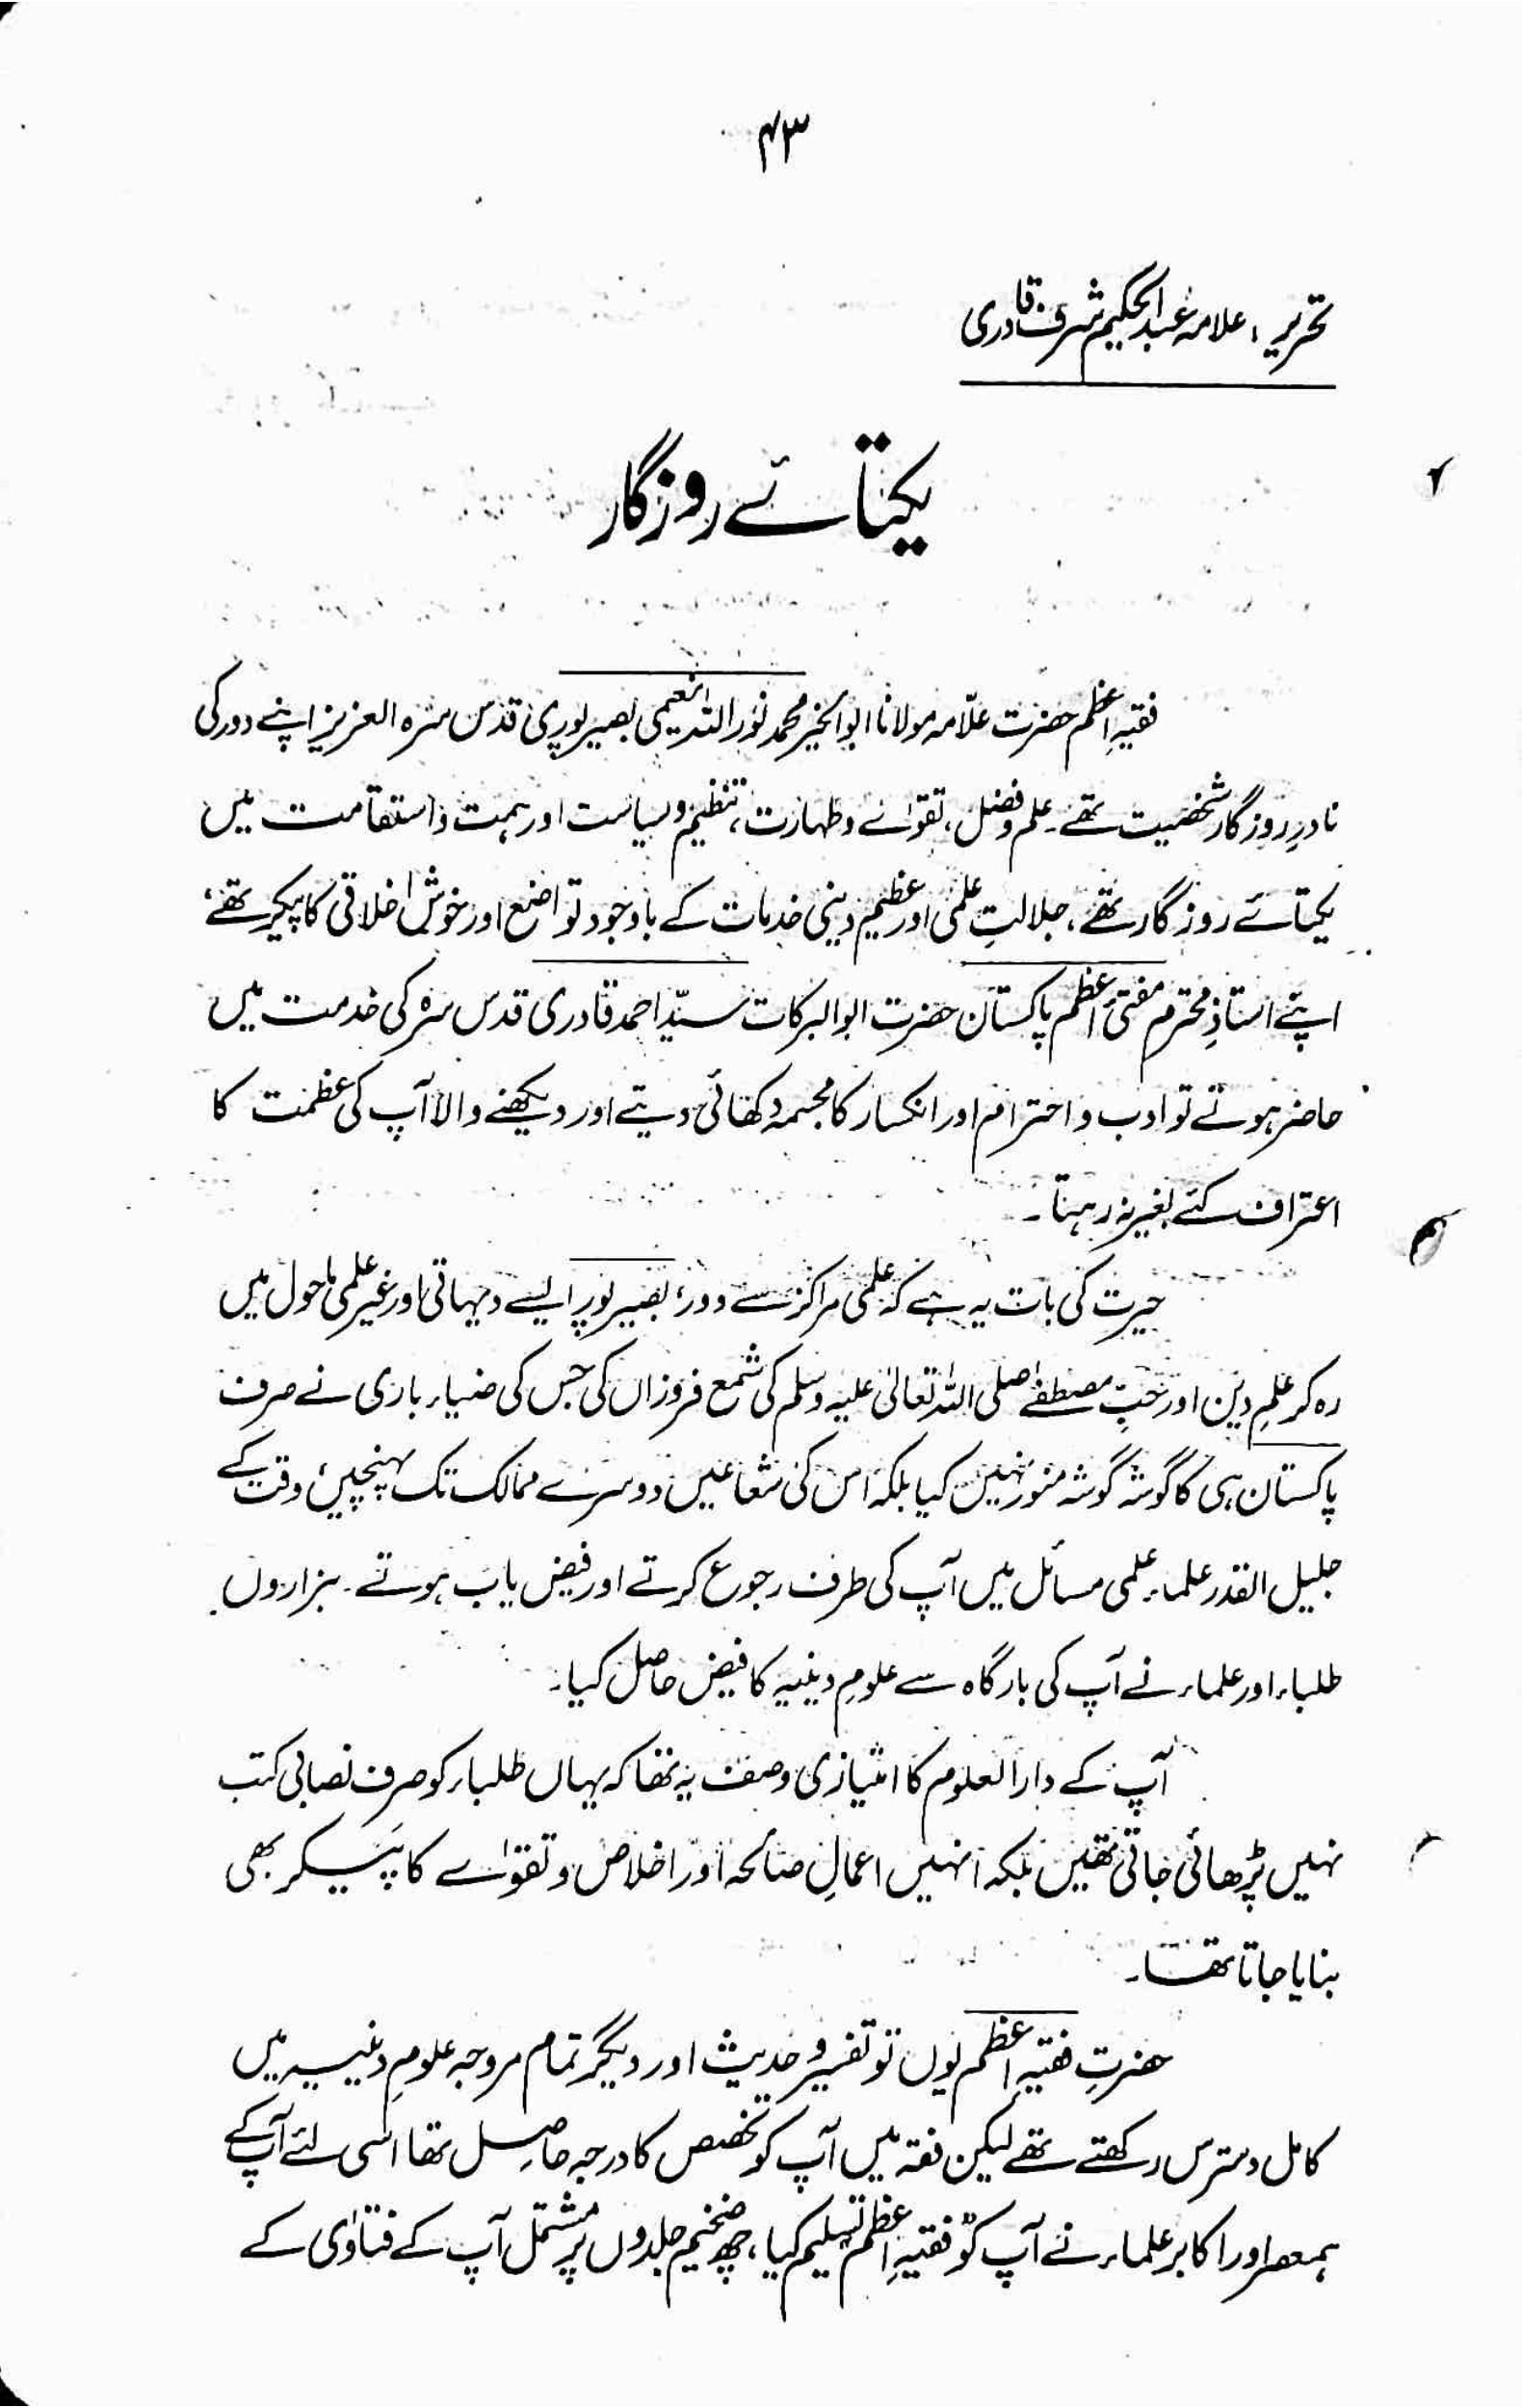 ۴۳
تحریر : علامہ عبدالحکیم شرف قادری
یکتائے روزگار
فقیہِ اعظم حضرت علّامہ مولانا ابوالخیر محمد نور اللہ نعیمی بصیرپوری قدس سرہ العزیز اپنے دور کی
نادرِ روزگار شخصیت تھے۔ علم و فضل، تقوٰے و طہارت، تنظیم و سیاست اور ہمت و استقامت میں
یکتائے روزگار تھے، جلالتِ علمی اور عظیم دینی خدمات کے باوجود تواضع اور خوش اخلاقی کا پیکر تھے،
اپنے استاذِ محترم مفتیٔ اعظم پاکستان حضرت ابوالبرکات سیّد احمد قادری قدس سرہ کی خدمت میں
حاضر ہوتے تو ادب و احترام اور انکسار کا مجسمہ دکھائی دیتے اور دیکھنے والا آپ کی عظمت کا
اعتراف کئے بغیر نہ رہتا۔
حیرت کی بات یہ ہے کہ علمی مراکز سے دور، بصیرپور ایسے دیہاتی اور غیر علمی ماحول میں
رہ کر علمِ دین اور حُبِّ مصطفٰے صلی اللہ تعالیٰ علیہ وسلم کی شمع فروزاں کی جس کی ضیاء باری نے صرف
پاکستان ہی کا گوشہ گوشہ منور نہیں کیا بلکہ اس کی شعاعیں دوسرے ممالک تک پہنچیں، وقت کے
جلیل القدر علماء علمی مسائل میں آپ کی طرف رجوع کرتے اور فیض یاب ہوتے۔ ہزاروں
طلباء اور علماء نے آپ کی بارگاہ سے علومِ دینیہ کا فیض حاصل کیا۔
آپ کے دارالعلوم کا امتیازی وصف یہ تھا کہ یہاں طلباء کو صرف نصابی کتب
نہیں پڑھائی جاتی تھیں بلکہ انہیں اعمالِ صالحہ اور اخلاص و تقوٰے کا پَیکر بھی
بنایا جاتا تھا۔
حضرتِ فقیہِ اعظم یوں تو تفسیر و حدیث اور دیگر تمام مروجہ علومِ دینیہ میں
کامل دسترس رکھتے تھے لیکن فقہ میں آپ کو تخصص کا درجہ حاصِل تھا اسی لئے آپ کے
ہمعصر اور اکابر علماء نے آپ کو فقیہِ اعظم تسلیم کیا، چھ ضخیم جلدوں پر مشتمل آپ کے فتاوٰی کے